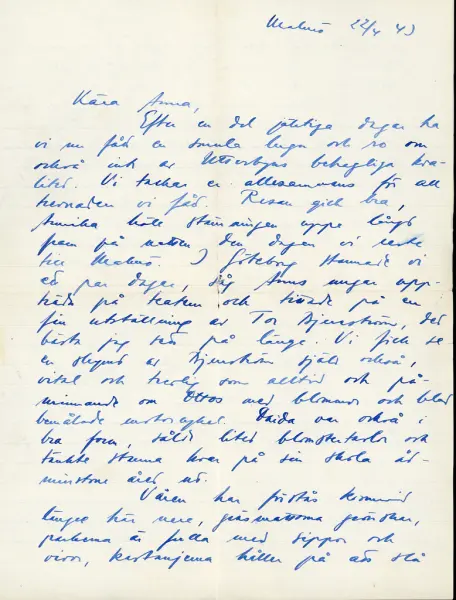 Malmö 22/4 43
Kära Anna,
Efter en del jäktiga dagar ha
vi nu fått en smula lugn och ro om
också ick av Utvorbyns behagliga kva-
litet. Vi tackar er allesammans för all
trevnaden vi fått. Resan gick bra,
Annika höll stämningen uppe långt
fram på natten den dagen vi reste
till Malmö. I Göteborg stannade vi
ett par dagar, såg Annas ungar upp-
träda på teatern och tittade på en
fin utställning av Tor Bjurström, det
bästa jag sett på länge. Vi fick se
en skymt av Bjurström själv också,
vital och trevlig som alltid och på-
minnande om Ottos med blommor och blad
bemålade motorcykel. Daida var också i
bra form, sålde litet blomstertavlor och
tänkte stanna kvar på sin skola åt-
minstone året ut.
Våren har förstås kommit
längre här nere, gräsmattorna grönskar,
parkerna är fulla med sippor och
violer, kastanjerna håller på att slå